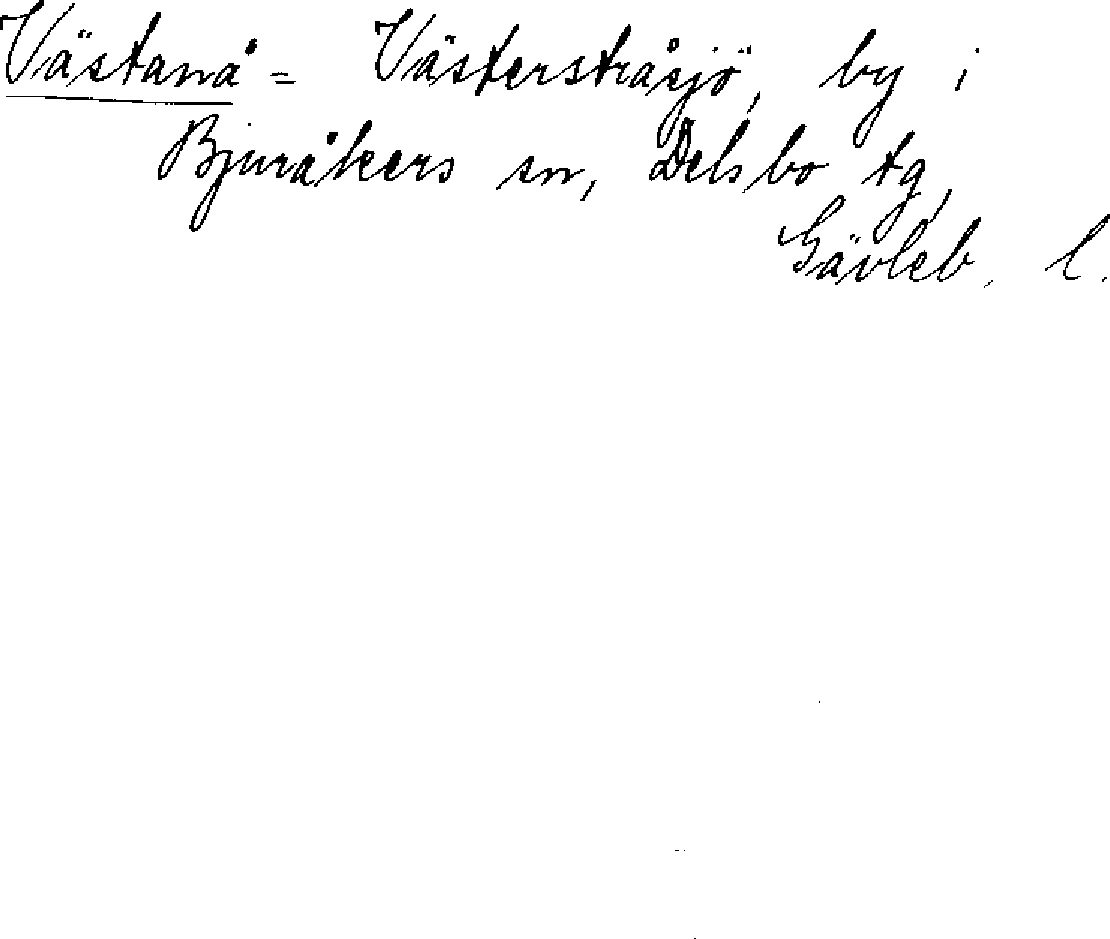 Västanå = Västerstråsjö, by i
Bjuråkers sn, Delsbo tg,
Gävleb. l.